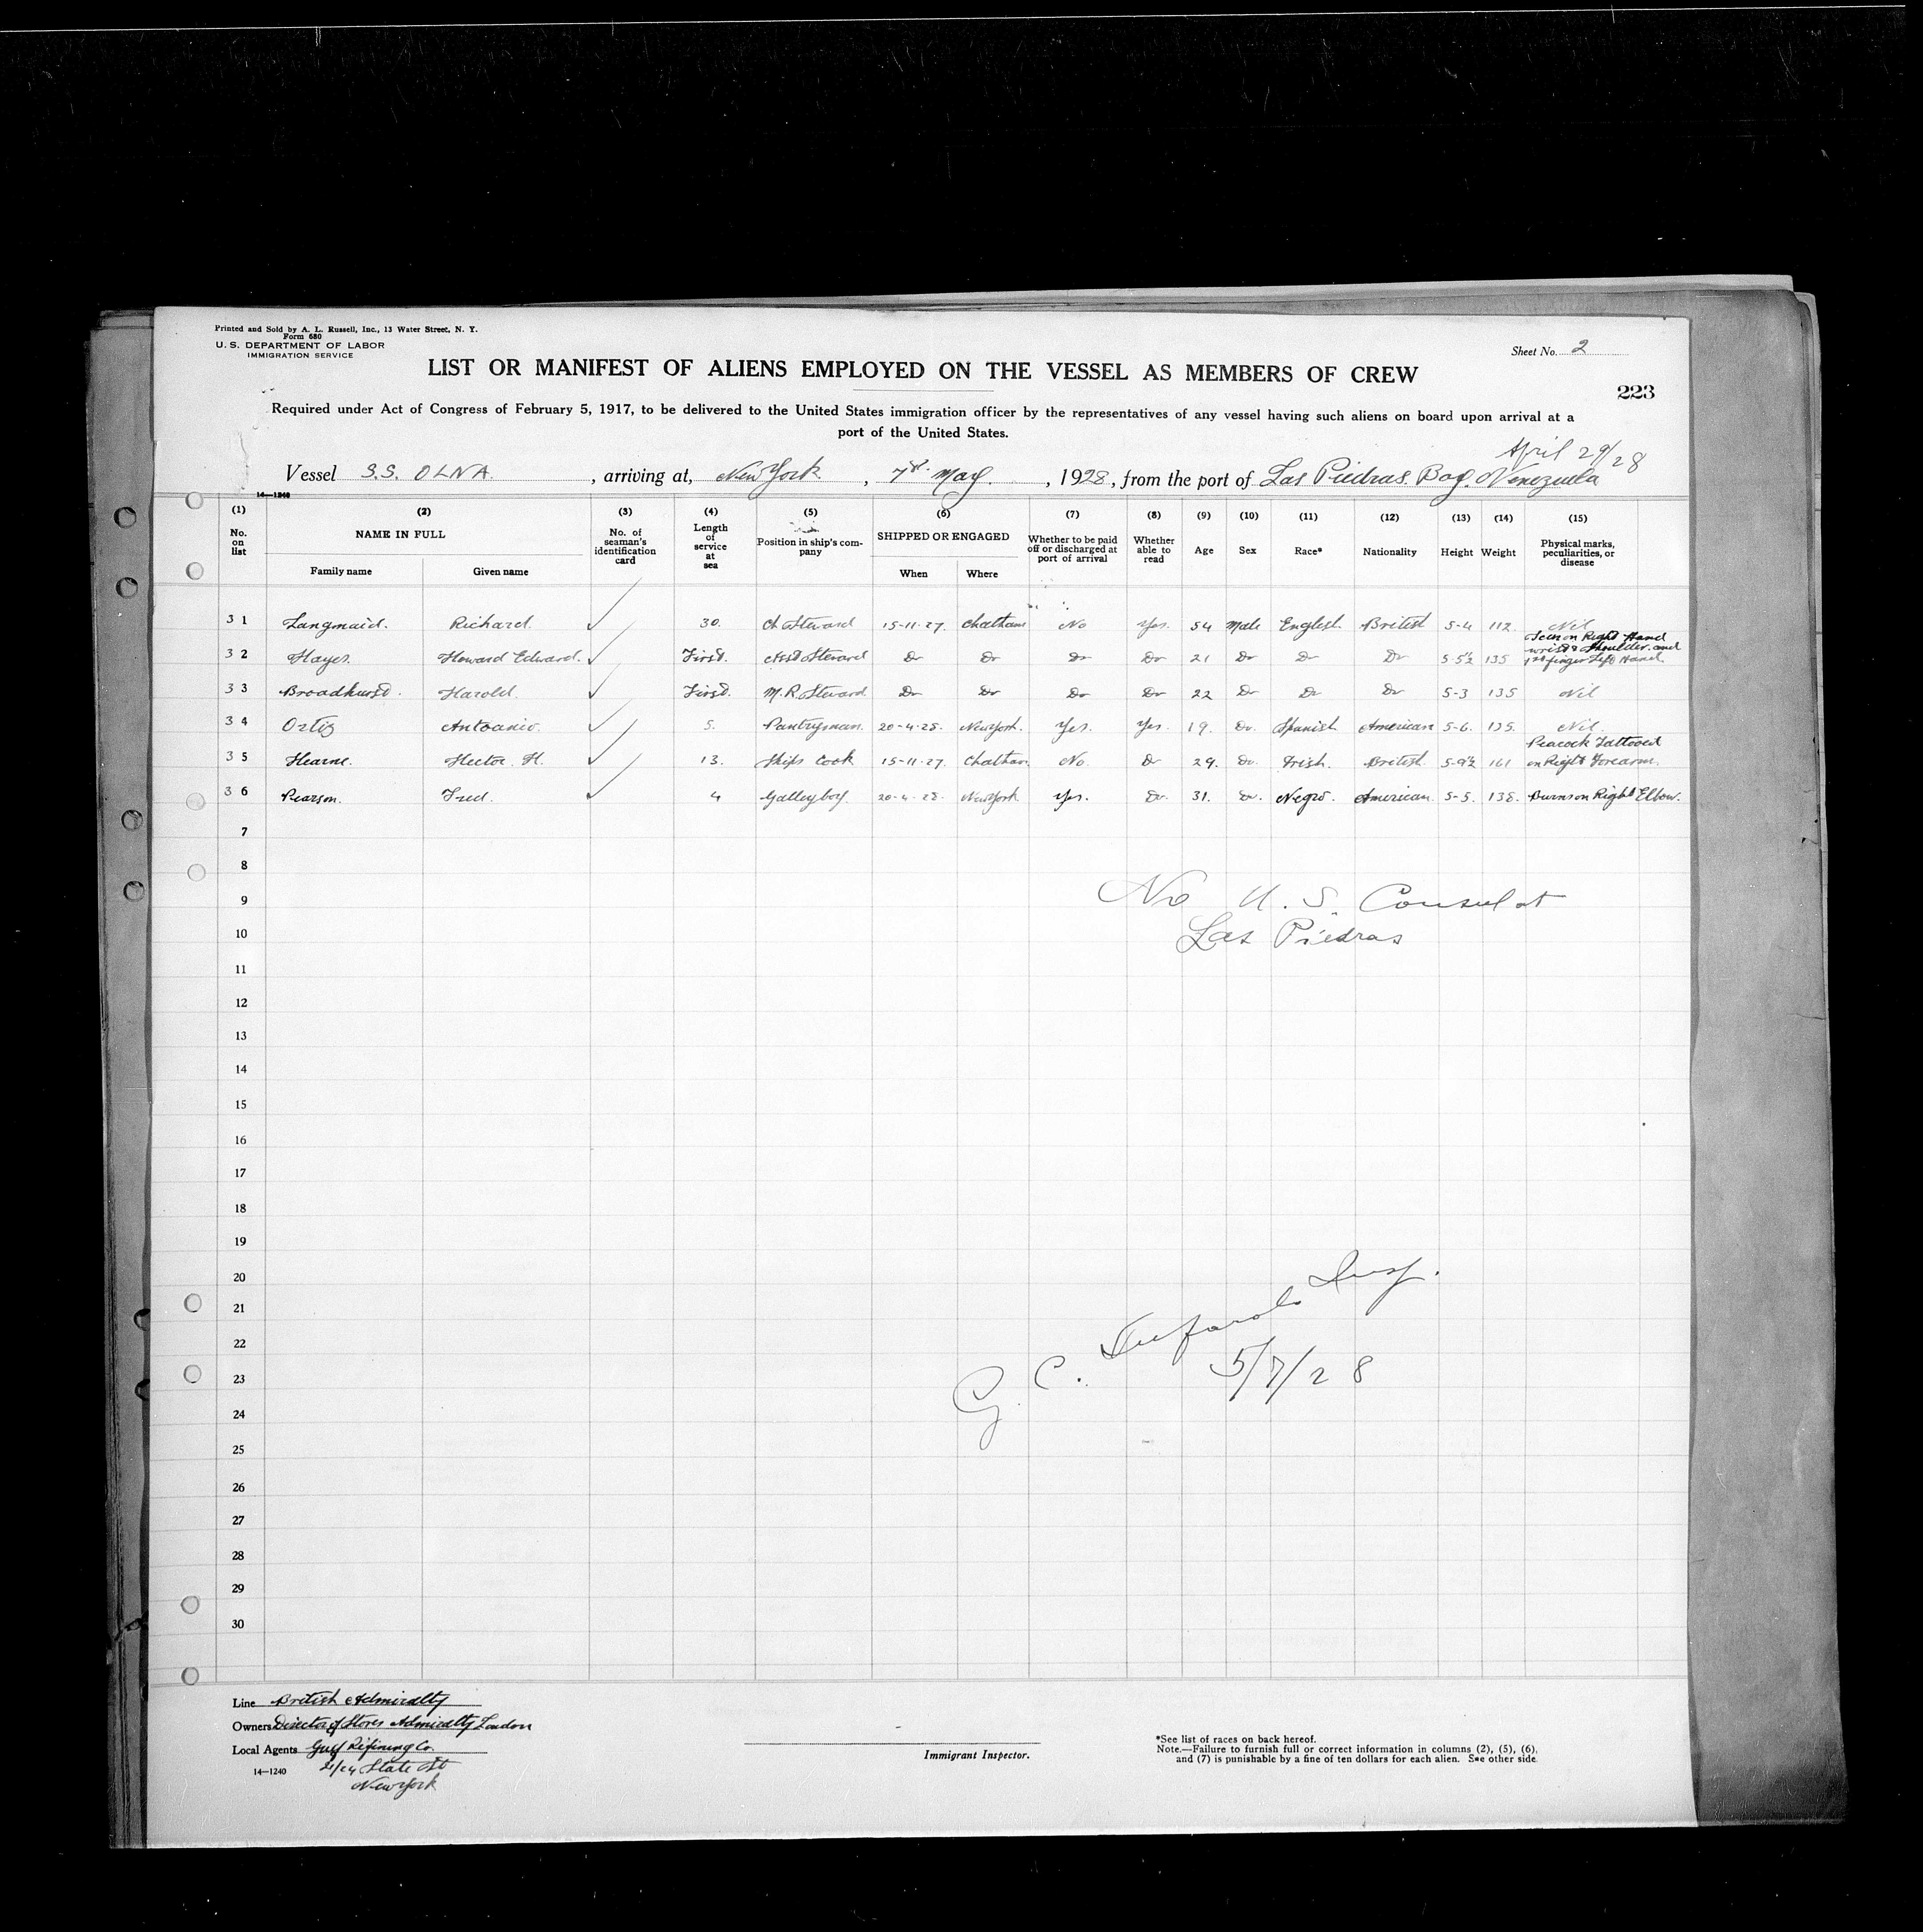 Printed and Sold by A. L. Russell, Inc., 13 Water Street, N. Y.
Form 680
U. S. DEPARTMENT OF LABOR
IMMIGRATION SERVICE
Sheet No. 2
LIST OR MANIFEST OF ALIENS EMPLOYED ON THE VESSEL AS MEMBERS OF CREW
223
Required under Act of Congress of February 5, 1917, to be delivered to the United States immigration officer by the representatives of any vessel having such aliens on board upon arrival at a
port of the United States.
April 29/28
Vessel S.S. OLNA, arriving at, New York, 7th May, 1928, from the port of Las Piedras Bay. Venezuela
14—1240
(1) (2) (3) (4) (5) (6) (7) (8) (9) (10) (11) (12) (13) (14) (15)
No. on list NAME IN FULL No. of seaman's identification card Length of service at sea Position in ship's company SHIPPED OR ENGAGED Whether to be paid off or discharged at port of arrival Whether able to read Age Sex Race* Nationality Height Weight Physical marks, peculiarities, or disease
Family name Given name When Where
31 Langmaid. Richard. 30. Ch Steward 15-11-27. Chatham No Yes. 54 Male English. British 5-4 112. Nil
32 Hayes. Howard Edward. First. Asst Steward Do Do Do Do 21 Do Do Do 5-5½ 135 Scar on Right Hand wrist & Shoulder. and 1st finger Left Hand.
33 Broadhurst. Harold. First. M.R. Steward Do Do Do Do 22 Do Do Do 5-3 135 Nil
34 Ortiz Antoanio. 5. Pantryman. 20-4-28. New York. Yes. Yes. 19. Do. Spanish American 5-6. 135. Nil.
35 Hearne. Hector. H. 13. Ships Cook 15-11-27. Chatham. No. Do 29. Do. Irish. British. 5-9½ 161 Peacock Tattooed on Right Forearm.
36 Pearson. Fred. 4 Galleyboy. 20-4-28. New York. Yes. Do. 31. Do. Negro. American. 5-5. 138. Burns on Right Elbow.
7
8
9
No U. S. Consul at
10
Las Piedras
11
12
13
14
15
16
17
18
19
20
21
22
23
24
25
26
27
28
29
30
G. C. Insp.
5/7/28
Line British Admiralty
Owners Director of Stores Admiralty London
Local Agents Gulf Refining Co.
State St
New York
14—1240
Immigrant Inspector.
*See list of races on back hereof.
Note.—Failure to furnish full or correct information in columns (2), (5), (6),
and (7) is punishable by a fine of ten dollars for each alien. See other side.